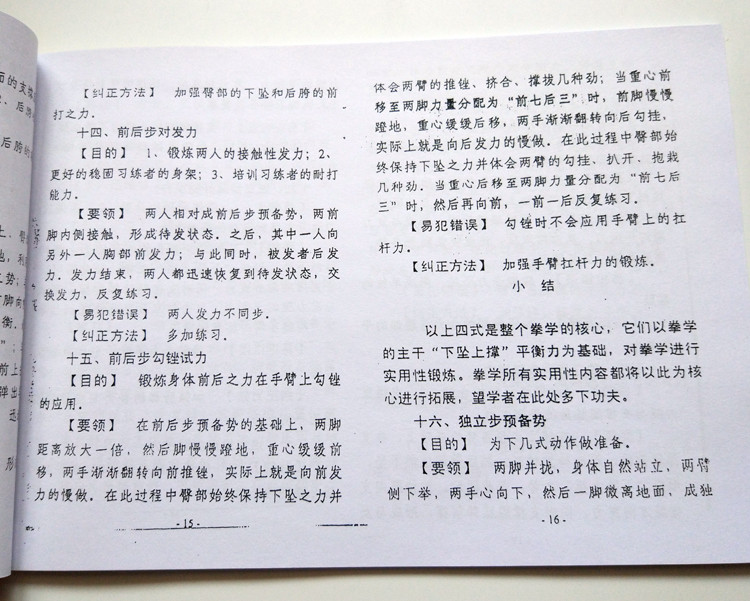 【纠正方法】 加强臀部的下坠和后胯的前
打之力．
十四、前后步对发力
【目的】 1、锻炼两人的接触性发力；2、
更好的稳固习练者的身架；3、培训习练者的耐打
能力．
【要领】 两人相对成前后步预备势，两前
脚内侧接触，形成待发状态．之后，其中一人向
另外一人胸部前发力；与此同时，被发者后发
力．发力结束，两人都迅速恢复到待发状态，交
换发力，反复练习．
【易犯错误】 两人发力不同步．
【纠正方法】 多加练习．
十五、前后步勾锉试力
【目的】 锻炼身体前后之力在手臂上勾锉
的应用．
【要领】 在前后步预备势的基础上，两脚
距离放大一倍，然后脚慢慢蹬地，重心缓缓前
移，两手渐渐翻转向前推锉，实际上就是向前发
力的慢做．在此过程中臀部始终保持下坠之力并
- 15 -
体会两臂的推锉、挤合、撑拔几种劲；当重心前
移至两脚力量分配为“前七后三”时，前脚慢慢
蹬地，重心缓缓后移，两手渐渐翻转向后勾挂，
实际上就是向后发力的慢做．在此过程中臀部始
终保持下坠之力并体会两臂的勾挂、扒开、抱栽
几种劲．当重心后移至两脚力量分配为“前七后
三”时，然后再向前，一前一后反复练习．
【易犯错误】 勾锉时不会应用手臂上的杠
杆力．
【纠正方法】 加强手臂杠杆力的锻炼．
小 结
以上四式是整个拳学的核心，它们以拳学
的主干“下坠上撑”平衡力为基础，对拳学进行
实用性锻炼。拳学所有实用性内容都将以此为核
心进行拓展，望学者在此处多下功夫。
十六、独立步预备势
【目的】 为下几式动作做准备．
【要领】 两脚并拢，身体自然站立，两臂
侧下举，两手心向下，然后一脚微离地面，成独
- 16 -